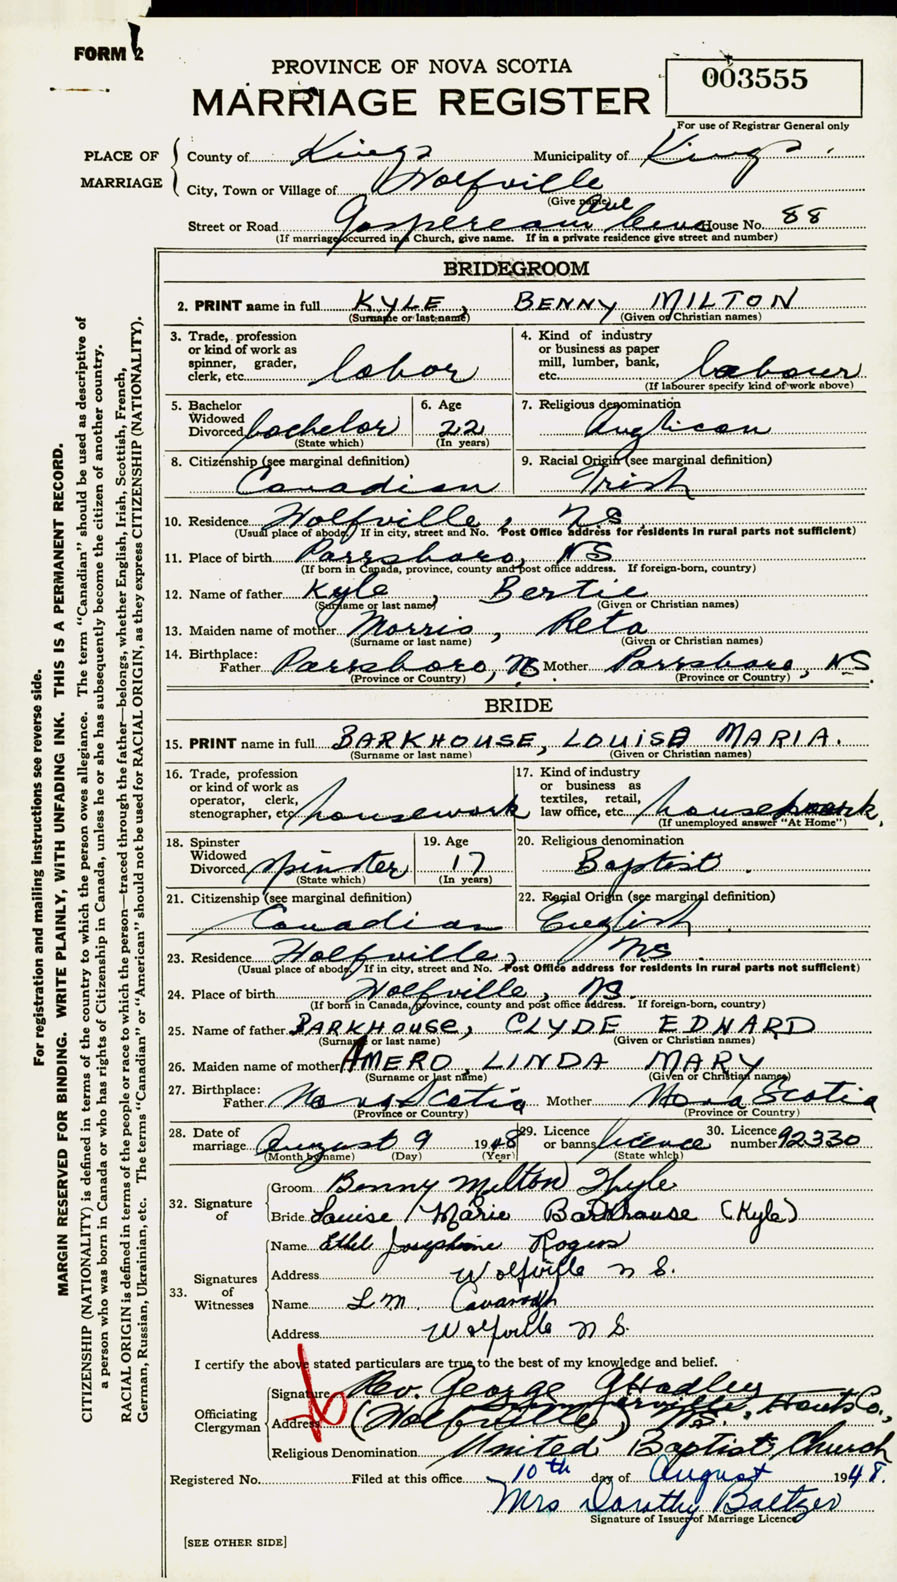 FORM 2
PROVINCE OF NOVA SCOTIA
MARRIAGE REGISTER
003555
For use of Registrar General only
PLACE OF MARRIAGE
County of Kings Municipality of Kings.
City, Town or Village of Wolfville
(Give name)
Street or Road Gaspereau Ave House No. 88
(If marriage occurred in a Church, give name. If in a private residence give street and number)
BRIDEGROOM
2. PRINT name in full KYLE, BENNY MILTON
(Surname or last name) (Given or Christian names)
3. Trade, profession or kind of work as spinner, grader, clerk, etc. labor
4. Kind of industry or business as paper mill, lumber, bank, etc. labour
(If labourer specify kind of work above)
5. Bachelor Widowed Divorced bachelor
(State which)
6. Age 22
(In years)
7. Religious denomination Anglican
8. Citizenship (see marginal definition) Canadian
9. Racial Origin (see marginal definition) Irish
10. Residence Wolfville, N.S.
(Usual place of abode. If in city, street and No. Post Office address for residents in rural parts not sufficient)
11. Place of birth Parrsboro, NS
(If born in Canada, province, county and post office address. If foreign-born, country)
12. Name of father Kyle, Bertie
(Surname or last name) (Given or Christian names)
13. Maiden name of mother Morris, Reta
(Surname or last name) (Given or Christian names)
14. Birthplace: Father Parrsboro, NS. Mother Parrsboro, NS.
(Province or Country) (Province or Country)
BRIDE
15. PRINT name in full BARKHOUSE, LOUISE MARIA.
(Surname or last name) (Given or Christian names)
16. Trade, profession or kind of work as operator, clerk, stenographer, etc. housework
17. Kind of industry or business as textiles, retail, law office, etc. housework.
(If unemployed answer "At Home")
18. Spinster Widowed Divorced spinster
(State which)
19. Age 17
(In years)
20. Religious denomination Baptist.
21. Citizenship (see marginal definition) Canadian
22. Racial Origin (see marginal definition) English
23. Residence Wolfville, NS.
(Usual place of abode. If in city, street and No. Post Office address for residents in rural parts not sufficient)
24. Place of birth Wolfville, NS.
(If born in Canada, province, county and post office address. If foreign-born, country)
25. Name of father BARKHOUSE, CLYDE EDWARD
(Surname or last name) (Given or Christian names)
26. Maiden name of mother AMERO, LINDA MARY
(Surname or last name) (Given or Christian names)
27. Birthplace: Father Nova Scotia Mother Nova Scotia
(Province or Country) (Province or Country)
28. Date of marriage August 9 1948
(Month by name) (Day) (Year)
29. Licence or banns licence
(State which)
30. Licence number 92330
32. Signature of
Groom Benny Milton Kyle
Bride Louise Marie Barkhouse (Kyle)
33. Signatures of Witnesses
Name Ethel Josephine Rogers
Address Wolfville N S.
Name L. M. Cavanagh
Address Wolfville N S.
I certify the above stated particulars are true to the best of my knowledge and belief.
Officiating Clergyman
Signature Rev. George A Hadley
Address (Wolfville) NS., Hants Co.,
Religious Denomination United Baptist Church
Registered No. Filed at this office 10th day of August 1948.
Mrs Dorothy Baltzer
Signature of Issuer of Marriage Licence
[SEE OTHER SIDE]
For registration and mailing instructions see reverse side.
MARGIN RESERVED FOR BINDING. WRITE PLAINLY, WITH UNFADING INK. THIS IS A PERMANENT RECORD.
CITIZENSHIP (NATIONALITY) is defined in terms of the country to which the person owes allegiance. The term "Canadian" should be used as descriptive of
a person who was born in Canada or who has rights of Citizenship in Canada, unless he or she has subsequently become the citizen of another country.
RACIAL ORIGIN is defined in terms of the people or race to which the person—traced through the father—belongs, whether English, Irish, Scottish, French,
German, Russian, Ukrainian, etc. The terms "Canadian" or "American" should not be used for RACIAL ORIGIN, as they express CITIZENSHIP (NATIONALITY).